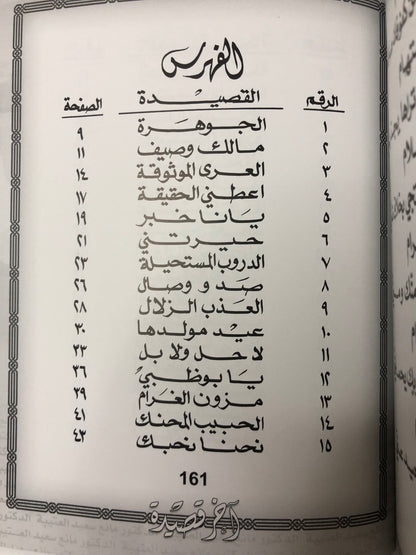 الفهرس
الرقم القصيدة الصفحة
١ الجوهرة ٩
٢ مالك وصيف ١١
٣ العرى الموثوقة ١٤
٤ اعطني الحقيقة ١٧
٥ يانا خبر ١٩
٦ حيرتني ٢١
٧ الدروب المستحيلة ٢٣
٨ صد و وصال ٢٦
٩ العذب الزلال ٢٨
١٠ عيد مولدها ٣٠
١١ لا حل ولا بل ٣٣
١٢ يا بوظبي ٣٦
١٣ مزون الغرام ٣٩
١٤ الحبيب المحنك ٤١
١٥ نحنا نحبك ٤٣
161
آخر قصيدة